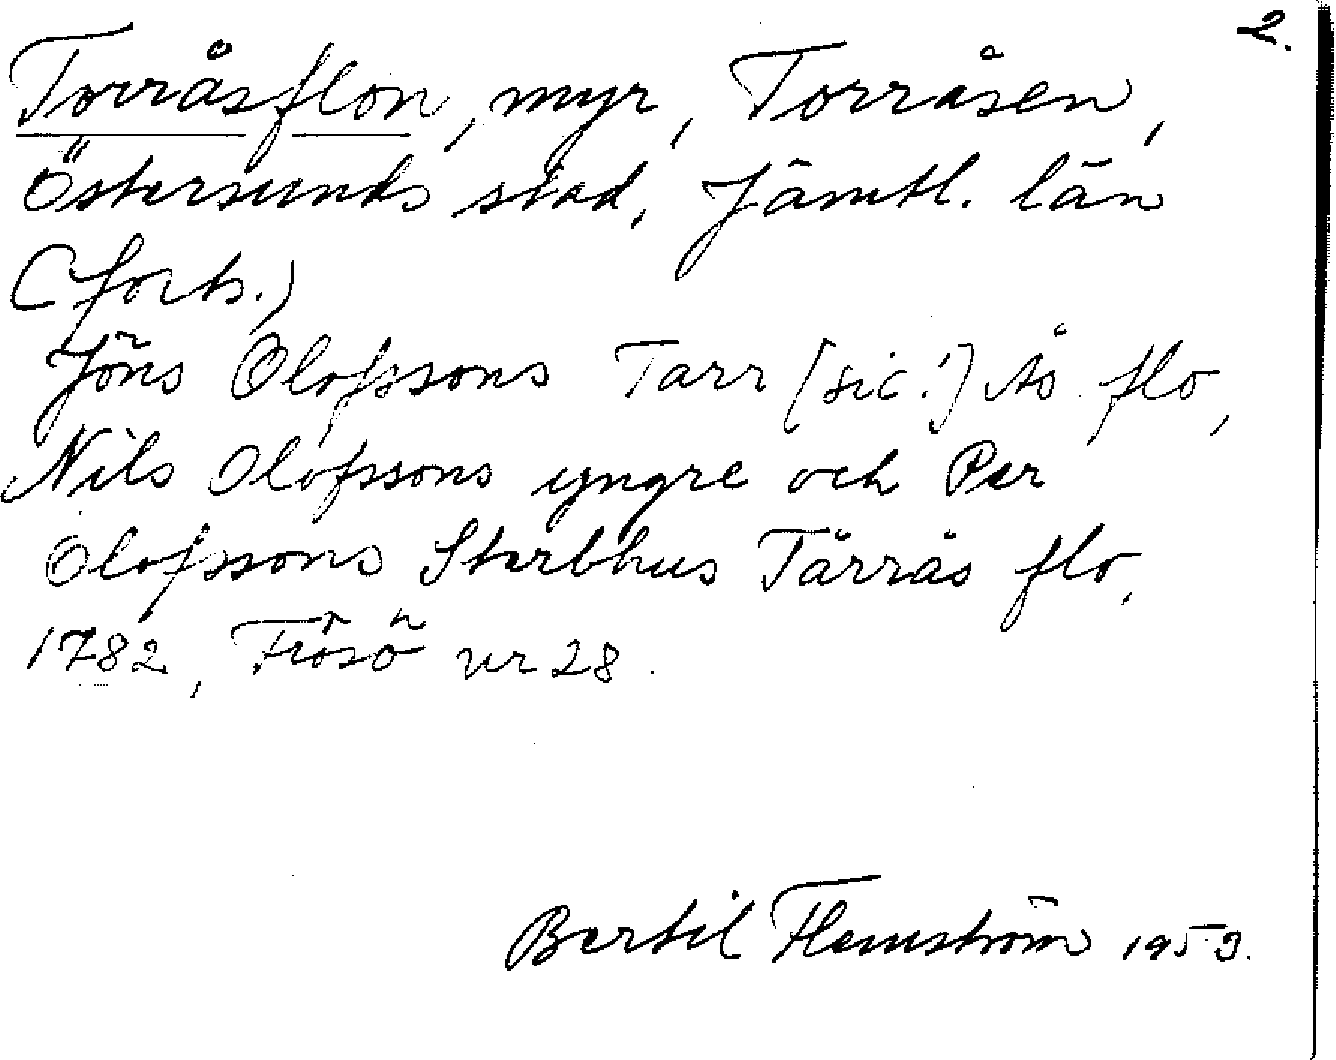 2.
Torråsflon, myr, Torråsen,
Östersunds stad, Jämtl. län
(forts.)
Jöns Olofssons Tarr [sic!] Ås flo,
Nils Olofssons yngre och Per
Olofssons Sterbhus Tårrås flo,
1782, Frösö nr 28.
Bertil Flemström 1959.